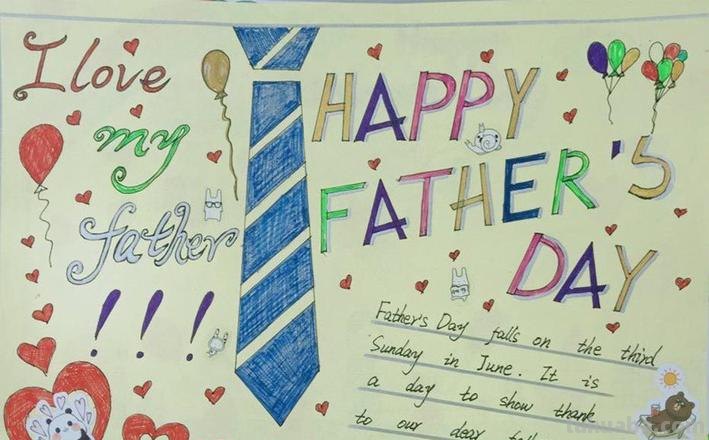 I love
my
father
!!!
HAPPY
FATHER'S
DAY
Father's Day falls on the third
Sunday in June. It is
a day to show thank
to our dear